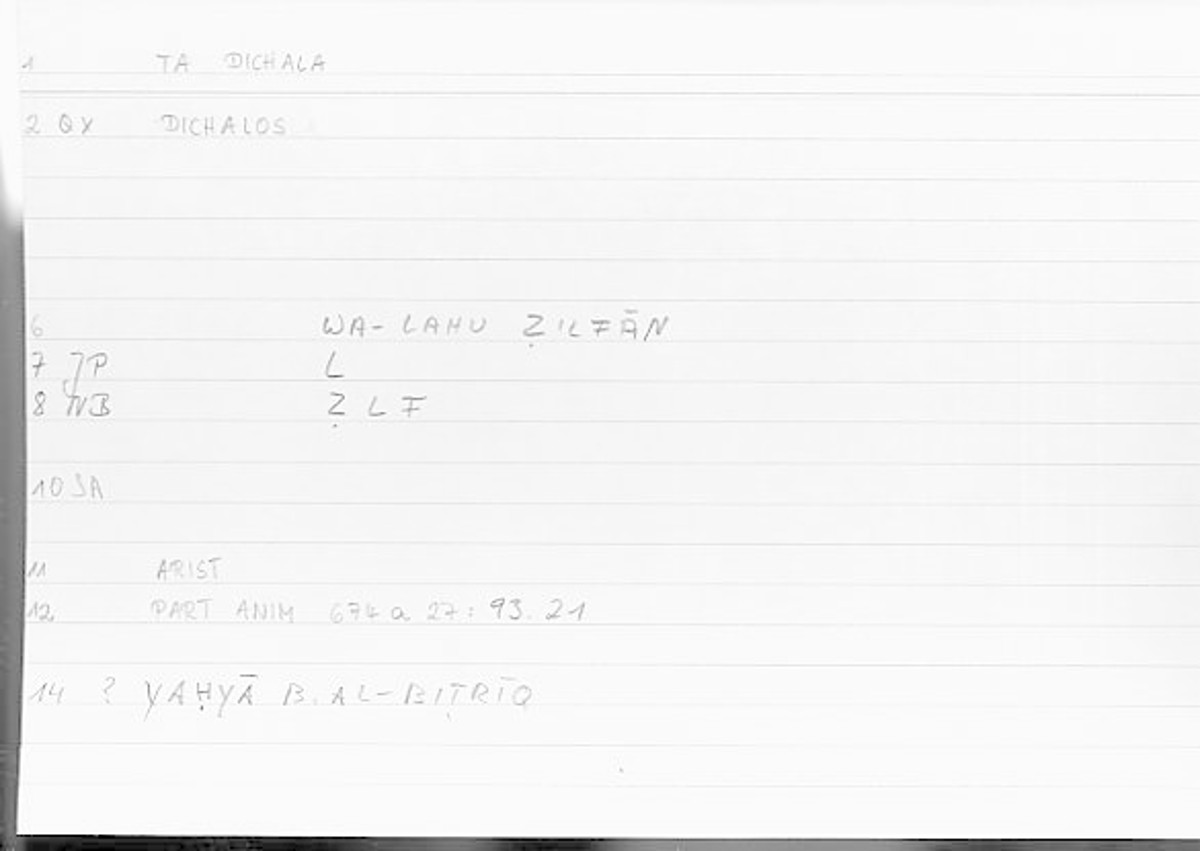 1 TA DICHALA
2 QX DICHALOS
6 WA-LAHU ẒILFĀN
7 JP L
8 NB ẒLF
10 SA
11 ARIST
12 PART ANIM 674 a 27 : 93.21
14 ? YAḤYĀ B. AL-BIṬRĪQ